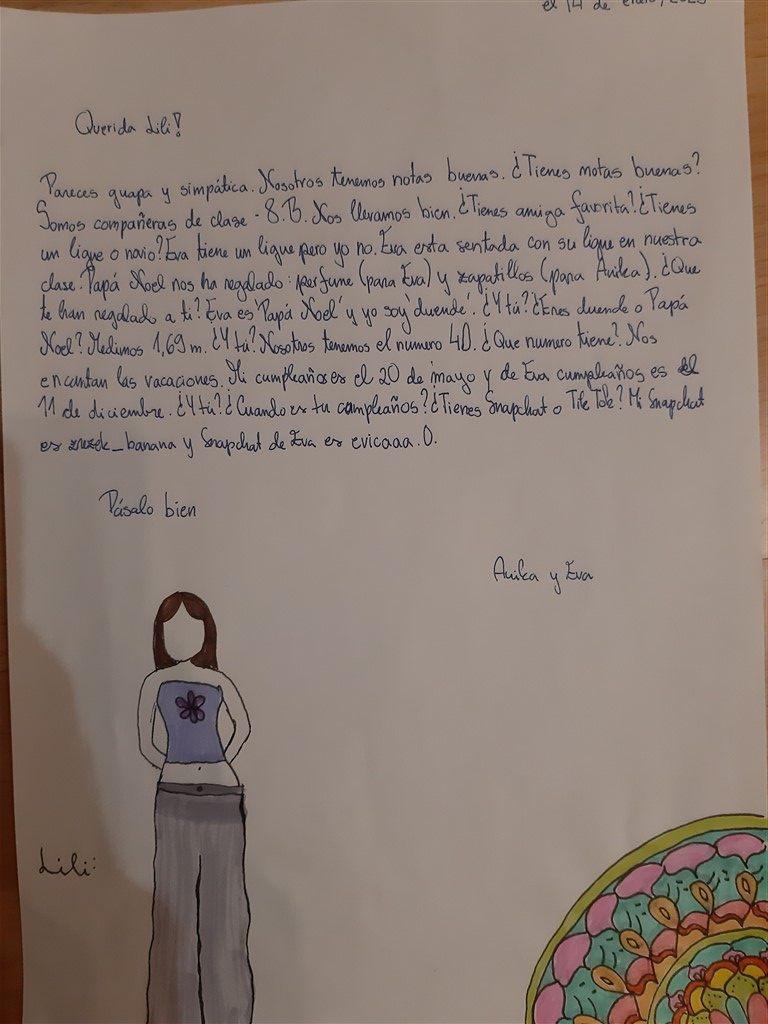 el 14 de enero, 2023
Querida Lili!
Pareces guapa y simpática. Nosotros tenemos notas buenas. ¿Tienes notas buenas?
Somos compañeras de clase - 8.B. Nos llevamos bien. ¿Tienes amiga favorita? ¿Tienes
un ligue o novio? Eva tiene un ligue pero yo no. Eva esta sentada con su ligue en nuestra
clase. Papá Noel nos ha regalado: perfume (para Eva) y zapatillos (para Anika). ¿Que
te han regalado a ti? Eva es 'Papá Noel' y yo soy 'duende'. ¿Y tú? ¿Eres duende o Papá
Noel? Medimos 1,69 m. ¿Y tú? Nosotros tenemos el numero 40. ¿Que numero tiene? Nos
encantan las vacaciones. Mi cumpleaños es el 20 de mayo y de Eva cumpleaños es el
11 de diciembre. ¿Y tú? ¿Cuando es tu cumpleaños? ¿Tienes Snapchat o Tik Tok? Mi Snapchat
es _banana y Snapchat de Eva es evicaaa.0.
Pásalo bien
Anika y Eva
Lili: